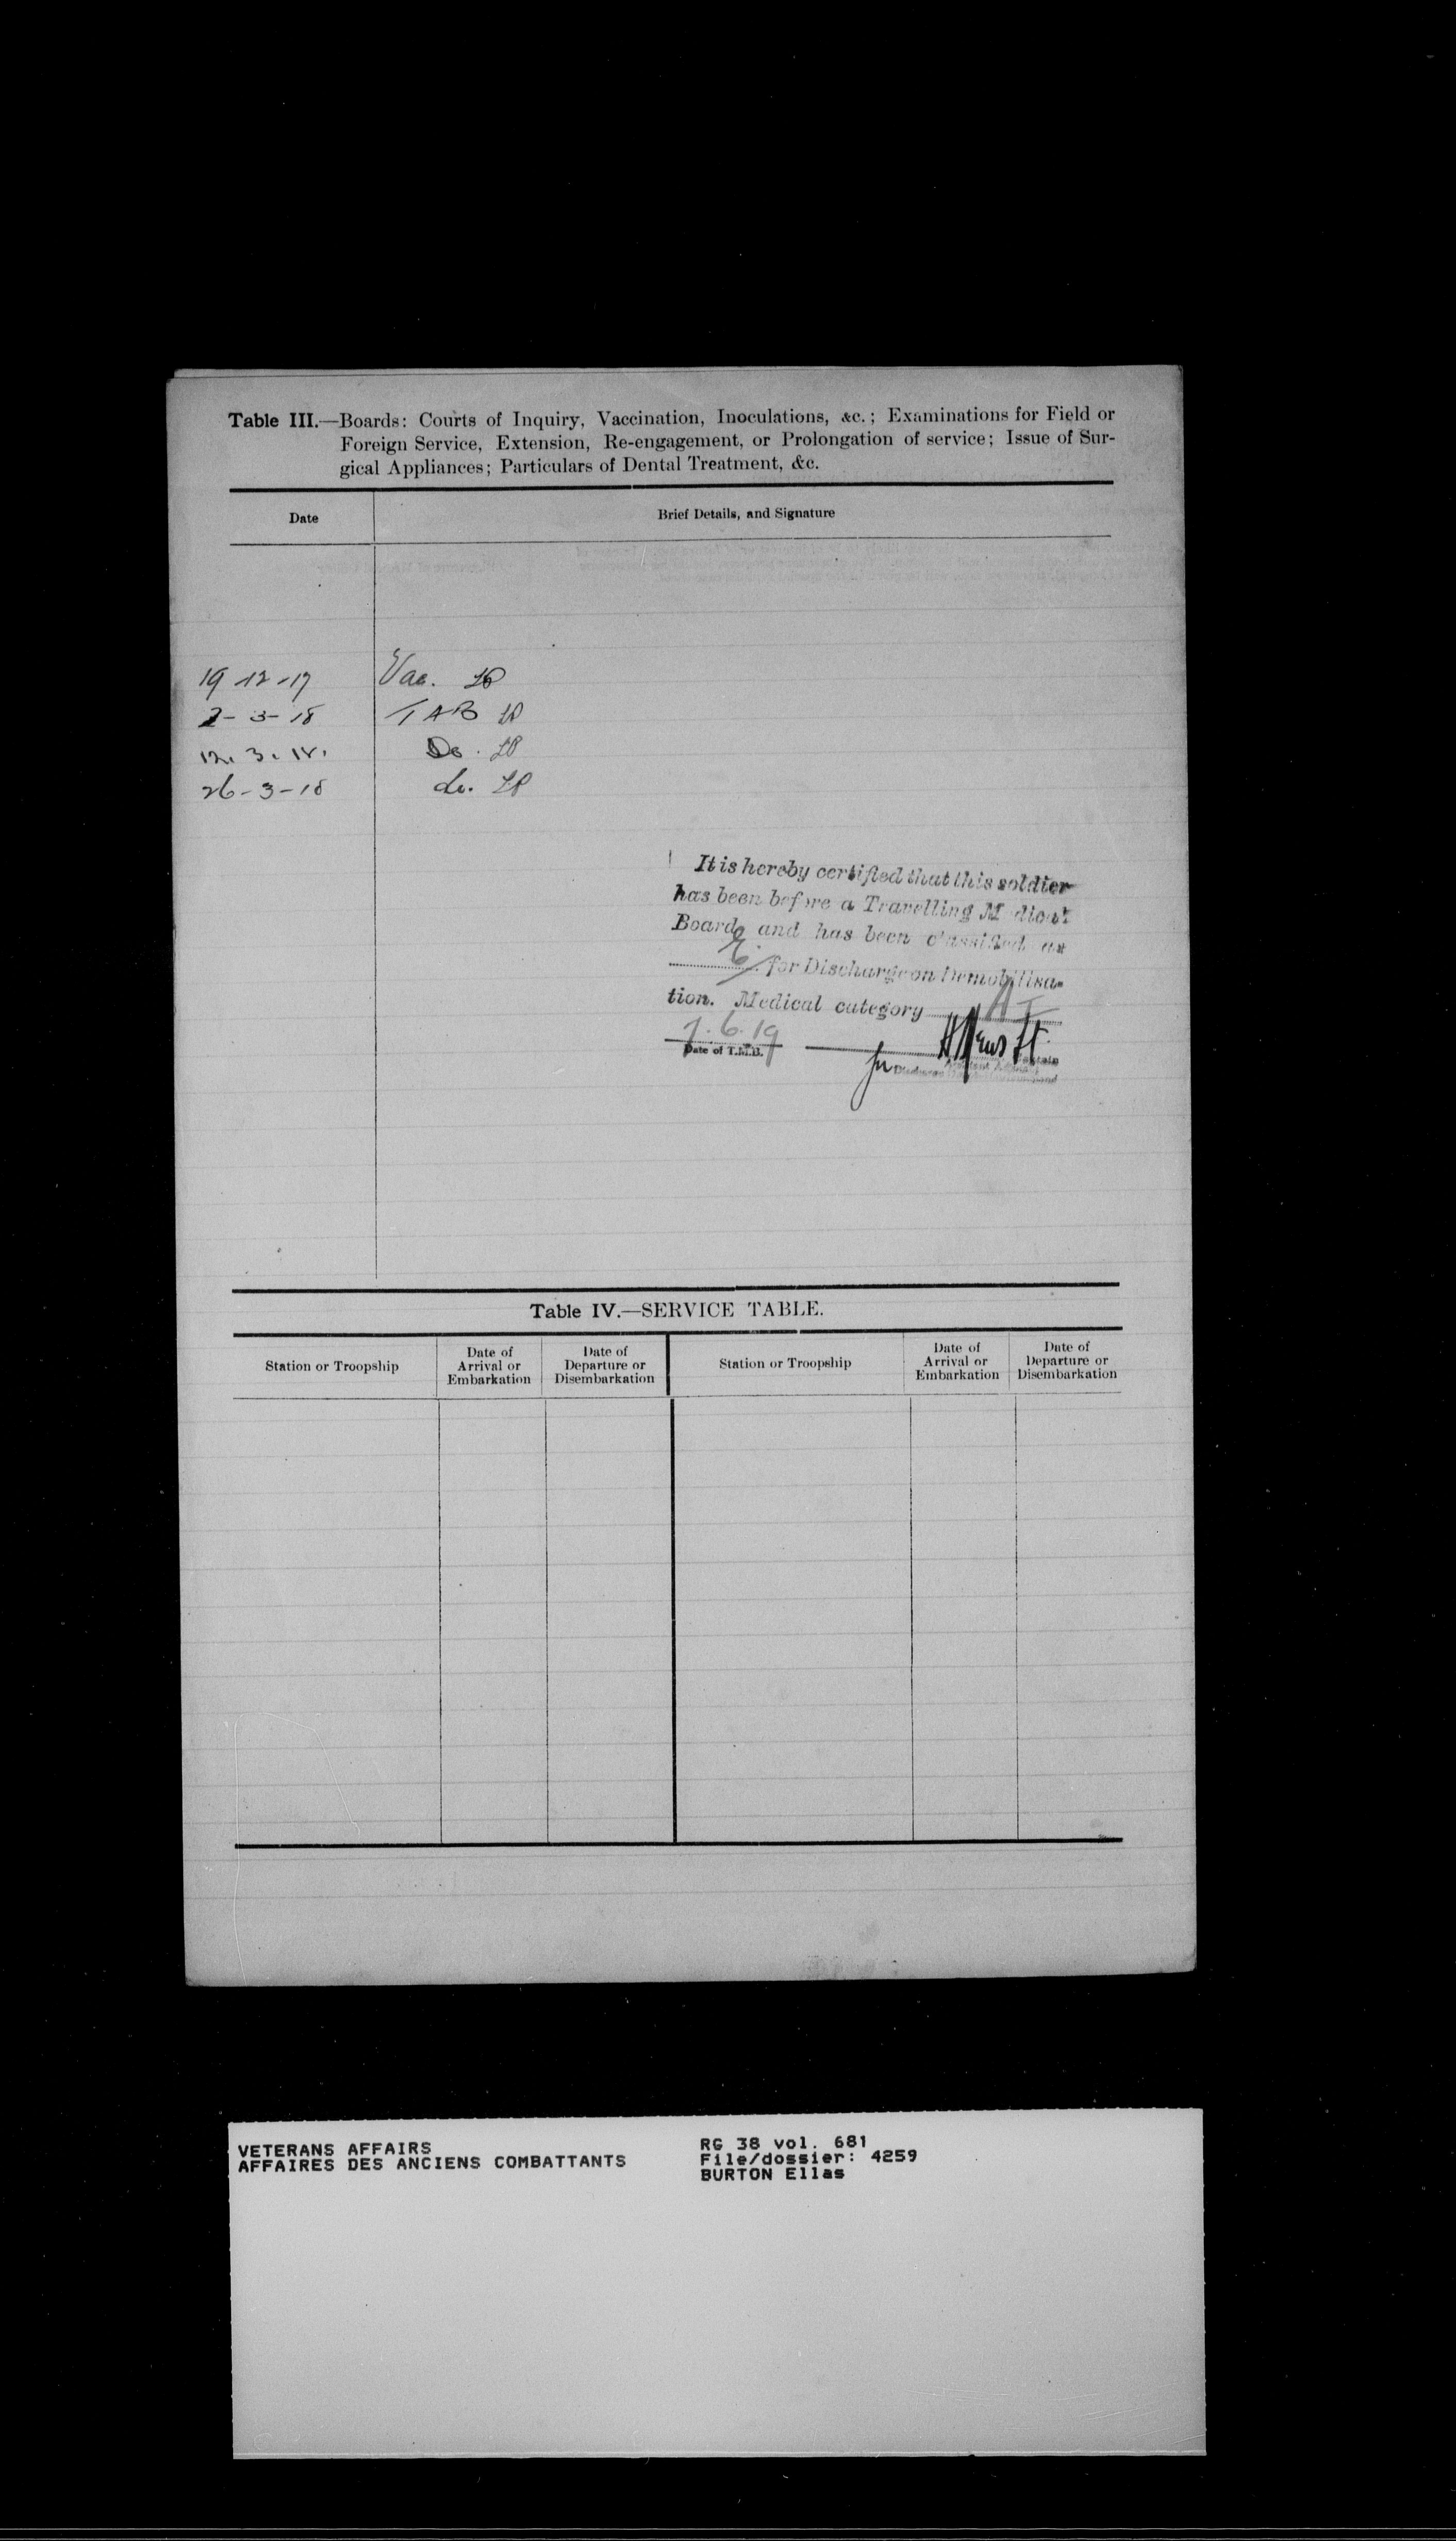 Table III.—Boards: Courts of Inquiry, Vaccination, Inoculations, &c.; Examinations for Field or
Foreign Service, Extension, Re-engagement, or Prolongation of service; Issue of Sur-
gical Appliances; Particulars of Dental Treatment, &c.
Date Brief Details, and Signature
19-12-17 Vac. LP
2-3-18 TAB LP
12.3.18. Do. LP
26-3-18 do. LP
It is hereby certified that this soldier
has been before a Travelling Medical
Board, and has been classified as
E. for Discharge on Demobilisa-
tion. Medical category A I
7.6.19
Date of T.M.B.
for Captain
Table IV.—SERVICE TABLE.
Station or Troopship Date of Arrival or Embarkation Date of Departure or Disembarkation Station or Troopship Date of Arrival or Embarkation Date of Departure or Disembarkation
VETERANS AFFAIRS
AFFAIRES DES ANCIENS COMBATTANTS
RG 38 vol. 681
File/dossier: 4259
BURTON Ellas